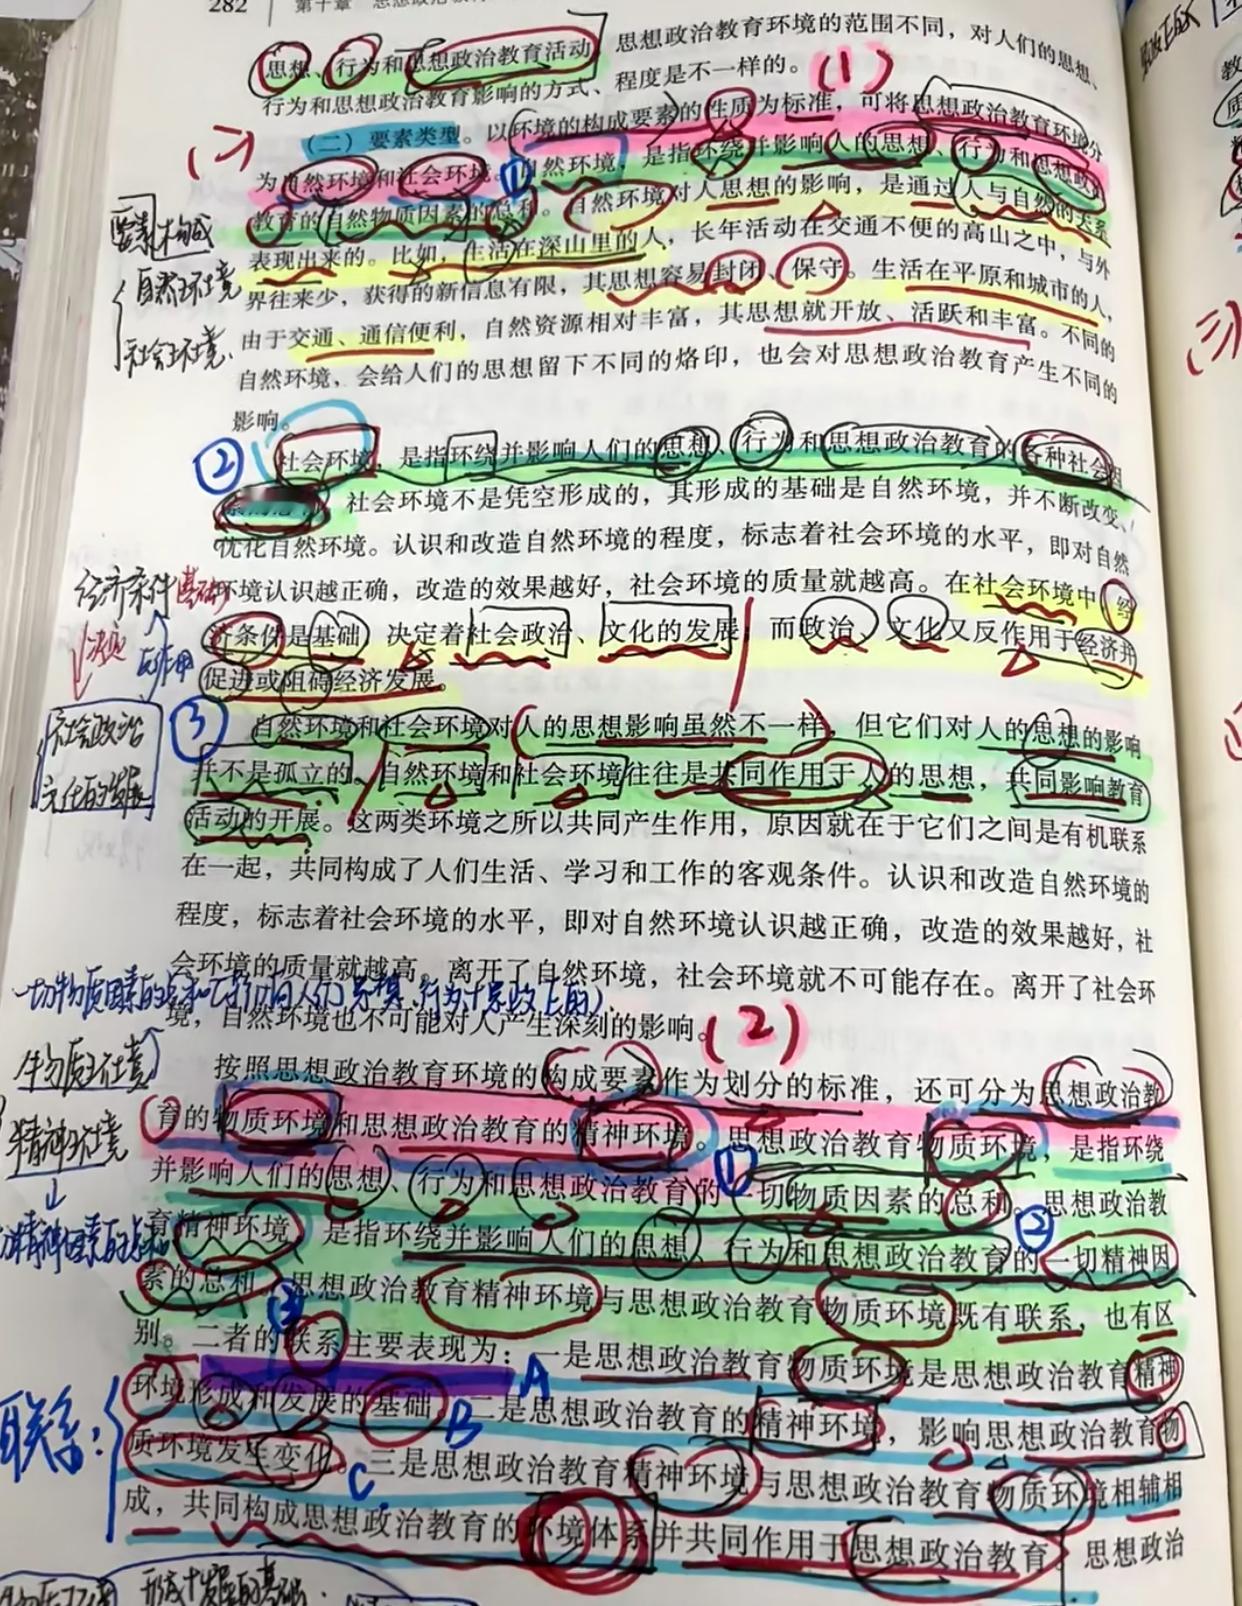 282 第十章
思想、行为和思想政治教育活动 思想政治教育环境的范围不同，对人们的思想、
行为和思想政治教育影响的方式、程度是不一样的。 (1)
（二）要素类型。以环境的构成要素的性质为标准，可将思想政治教育环境分
为自然环境和社会环境。自然环境，是指环绕并影响人的思想、行为和思想政治
教育的自然物质因素的总和。自然环境对人思想的影响，是通过人与自然的关系
表现出来的。比如，生活在深山里的人，长年活动在交通不便的高山之中，与外
界往来少，获得的新信息有限，其思想容易封闭、保守。生活在平原和城市的人，
由于交通、通信便利，自然资源相对丰富，其思想就开放、活跃和丰富。不同的
自然环境，会给人们的思想留下不同的烙印，也会对思想政治教育产生不同的
影响。
自然环境
社会环境
② 社会环境，是指环绕并影响人们的思想、行为和思想政治教育的各种社会因
社会环境不是凭空形成的，其形成的基础是自然环境，并不断改变、
优化自然环境。认识和改造自然环境的程度，标志着社会环境的水平，即对自然
环境认识越正确，改造的效果越好，社会环境的质量就越高。在社会环境中，经
济条件是基础，决定着社会政治、文化的发展，而政治、文化又反作用于经济并
促进或阻碍经济发展。
经济条件 基础
决定 反作用
社会政治
文化的发展
③ 自然环境和社会环境对人的思想影响虽然不一样，但它们对人的思想的影响
并不是孤立的。自然环境和社会环境往往是共同作用于人的思想，共同影响教育
活动的开展。这两类环境之所以共同产生作用，原因就在于它们之间是有机联系
在一起，共同构成了人们生活、学习和工作的客观条件。认识和改造自然环境的
程度，标志着社会环境的水平，即对自然环境认识越正确，改造的效果越好，社
会环境的质量就越高。离开了自然环境，社会环境就不可能存在。离开了社会环
境，自然环境也不可能对人产生深刻的影响。 (2)
按照思想政治教育环境的构成要素作为划分的标准，还可分为思想政治教
育的物质环境和思想政治教育的精神环境。思想政治教育物质环境，是指环绕
并影响人们的思想、行为和思想政治教育的一切物质因素的总和。思想政治教
育精神环境，是指环绕并影响人们的思想、行为和思想政治教育的一切精神因
素的总和。思想政治教育精神环境与思想政治教育物质环境既有联系，也有区
别。二者的联系主要表现为：一是思想政治教育物质环境是思想政治教育精神
环境形成和发展的基础。二是思想政治教育的精神环境，影响思想政治教育物
质环境发生变化。三是思想政治教育精神环境与思想政治教育物质环境相辅相
成，共同构成思想政治教育的环境体系并共同作用于思想政治教育。思想政治
物质环境
精神环境
精神因素的总和
联系：
A
B
C
形成+发展的基础.